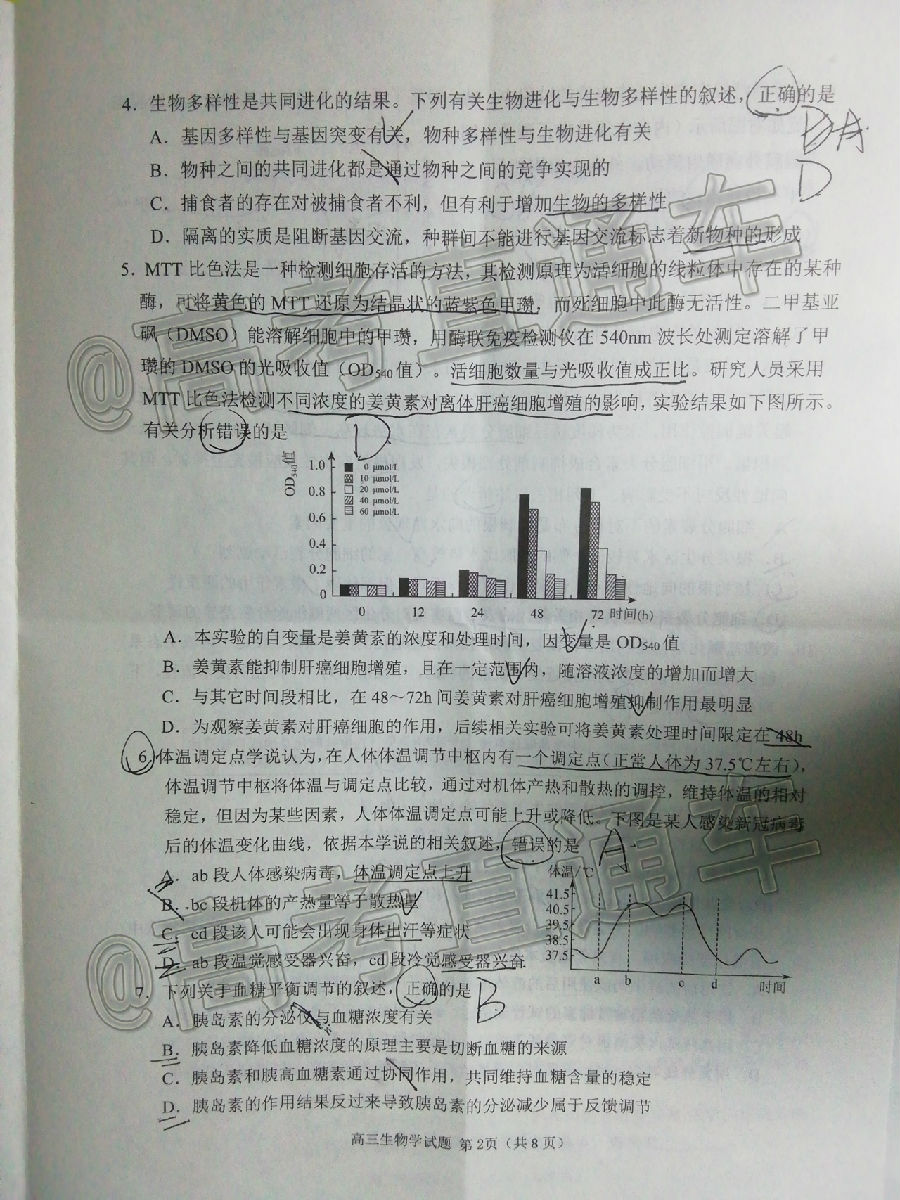 4. 生物多样性是共同进化的结果。下列有关生物进化与生物多样性的叙述，正确的是
A. 基因多样性与基因突变有关，物种多样性与生物进化有关
B. 物种之间的共同进化都是通过物种之间的竞争实现的
C. 捕食者的存在对被捕食者不利，但有利于增加生物的多样性
D. 隔离的实质是阻断基因交流，种群间不能进行基因交流标志着新物种的形成
A
D
5. MTT 比色法是一种检测细胞存活的方法，其检测原理为活细胞的线粒体中存在的某种
酶，可将黄色的 MTT 还原为结晶状的蓝紫色甲瓒，而死细胞中此酶无活性。二甲基亚
砜（DMSO）能溶解细胞中的甲瓒，用酶联免疫检测仪在 540nm 波长处测定溶解了甲
瓒的 DMSO 的光吸收值（OD540 值）。活细胞数量与光吸收值成正比。研究人员采用
MTT 比色法检测不同浓度的姜黄素对离体肝癌细胞增殖的影响，实验结果如下图所示。
有关分析错误的是
D
OD540值
1.0
0.8
0.6
0.4
0.2
0
0 μmol/L
10 μmol/L
20 μmol/L
40 μmol/L
60 μmol/L
0 12 24 48 72 时间(h)
A. 本实验的自变量是姜黄素的浓度和处理时间，因变量是 OD540 值
B. 姜黄素能抑制肝癌细胞增殖，且在一定范围内，随溶液浓度的增加而增大
C. 与其它时间段相比，在 48～72h 间姜黄素对肝癌细胞增殖抑制作用最明显
D. 为观察姜黄素对肝癌细胞的作用，后续相关实验可将姜黄素处理时间限定在 48h
6. 体温调定点学说认为，在人体体温调节中枢内有一个调定点（正常人体为 37.5℃左右），
体温调节中枢将体温与调定点比较，通过对机体产热和散热的调控，维持体温的相对
稳定，但因为某些因素，人体体温调定点可能上升或降低。下图是某人感染新冠病毒
后的体温变化曲线，依据本学说的相关叙述，错误的是
A
A. ab 段人体感染病毒，体温调定点上升
B. bc 段机体的产热量等于散热量
C. cd 段该人可能会出现身体出汗等症状
D. ab 段温觉感受器兴奋，cd 段冷觉感受器兴奋
体温/℃
41.5
40.5
39.5
38.5
37.5
a b c d 时间
7. 下列关于血糖平衡调节的叙述，正确的是
B
A. 胰岛素的分泌仅与血糖浓度有关
B. 胰岛素降低血糖浓度的原理主要是切断血糖的来源
C. 胰岛素和胰高血糖素通过协同作用，共同维持血糖含量的稳定
D. 胰岛素的作用结果反过来导致胰岛素的分泌减少属于反馈调节
高三生物学试题 第2页（共8页）
@高考直通车
@高考直通车